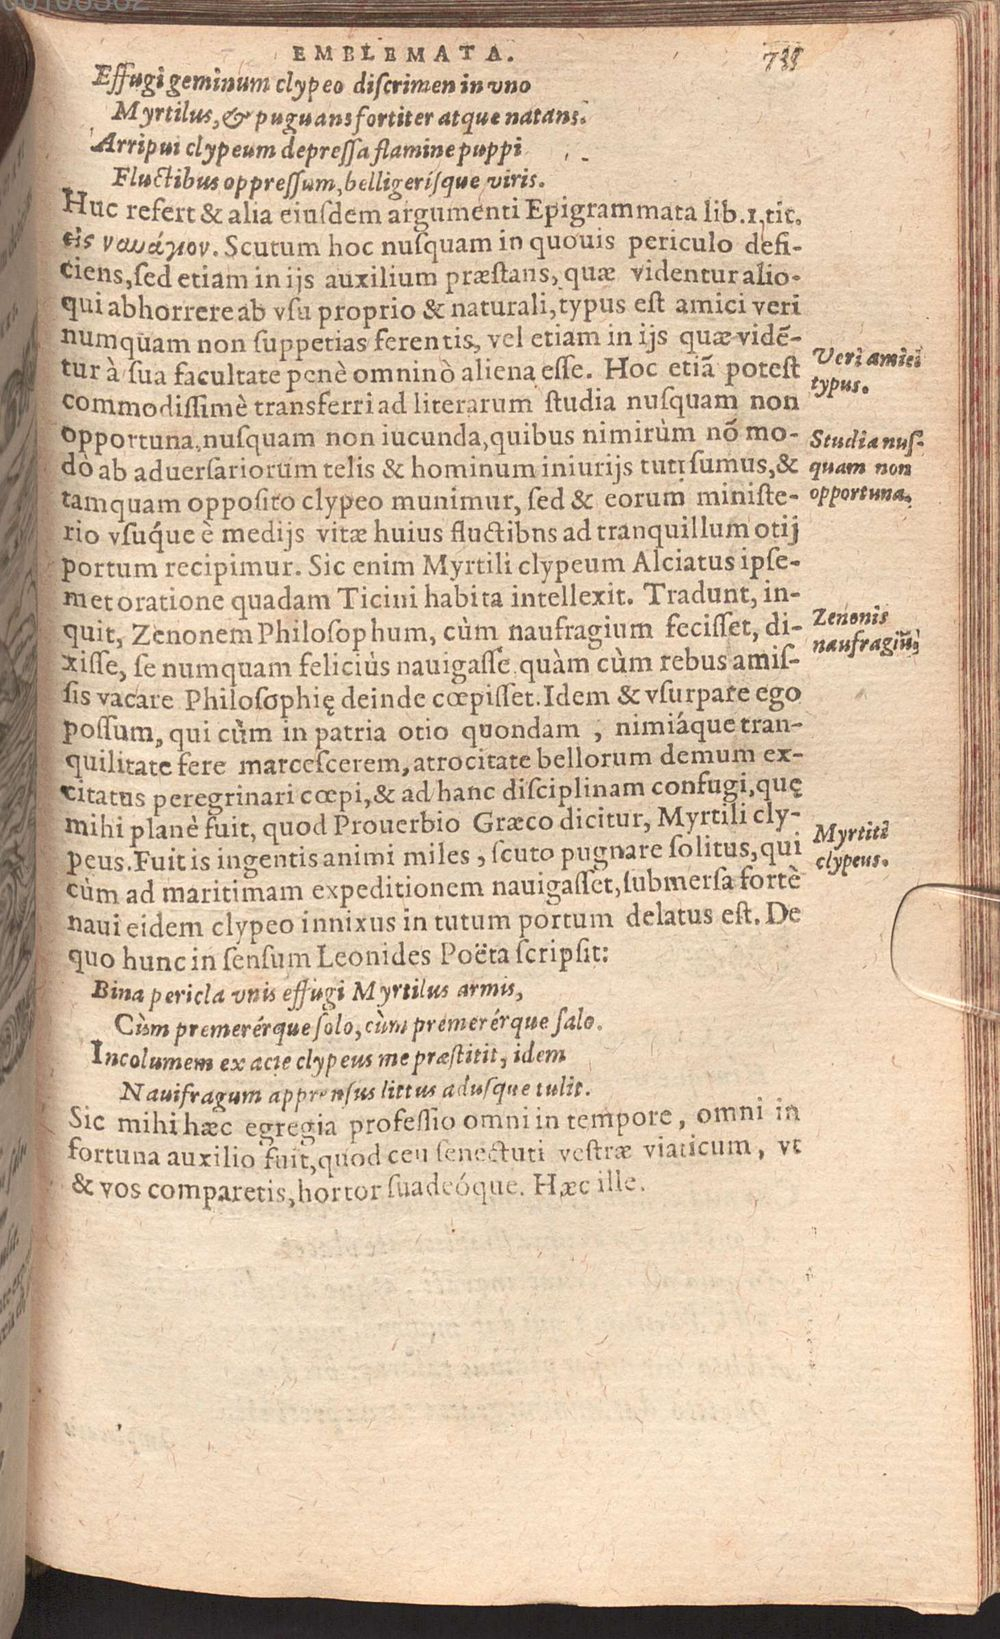 EMBLEMATA.
Effugi geminum clypeo diſcrimen in vno
Myrtilus, & pugnans fortiter atque natans.
Arripui clypeum depreſſa flamine puppi
Fluctibus oppreſſum, belligeriſque viris.
Huc refert & alia eiuſdem argumenti Epigrammata lib. 1. tit.
εἰς ναυάγιον. Scutum hoc nuſquam in quouis periculo defi-
ciens, ſed etiam in ijs auxilium præſtans, quæ videntur alio-
qui abhorrere ab vſu proprio & naturali, typus eſt amici veri
numquam non ſuppetias ferentis, vel etiam in ijs quæ vidẽ-
tur à ſua facultate penè omninò aliena eſſe. Hoc etiã poteſt
commodiſſimè transferri ad literarum ſtudia nuſquam non
opportuna, nuſquam non iucunda, quibus nimirùm nõ mo-
dò ab aduerſariorum telis & hominum iniurijs tuti ſumus, &
tamquam oppoſito clypeo munimur, ſed & eorum miniſte-
rio vſuq́ue è medijs vitæ huius fluctibns ad tranquillum otij
portum recipimur. Sic enim Myrtili clypeum Alciatus ipſe-
met oratione quadam Ticini habita intellexit. Tradunt, in-
quit, Zenonem Philoſophum, cùm naufragium feciſſet, di-
xiſſe, ſe numquam feliciùs nauigaſſe quàm cùm rebus amiſ-
ſis vacare Philoſophię deinde cœpiſſet. Idem & vſurpare ego
poſſum, qui cùm in patria otio quondam , nimiáque tran-
quilitate fere marceſcerem, atrocitate bellorum demum ex-
citatus peregrinari cœpi, & ad hanc diſciplinam confugi, quę
mihi planè fuit, quod Prouerbio Græco dicitur, Myrtili cly-
peus. Fuit is ingentis animi miles , ſcuto pugnare ſolitus, qui
cùm ad maritimam expeditionem nauigaſſet, ſubmerſa fortè
naui eidem clypeo innixus in tutum portum delatus eſt. De
quo hunc in ſenſum Leonides Poëta ſcripſit:
Bina pericla vnis effugi Myrtilus armis,
Cùm premerérque ſolo, cùm premerérque ſalo.
Incolumem ex acie clypeus me præſtitit, idem
Nauifragum apprenſus littus aduſque tulit.
Sic mihi hæc egregia profeſſio omni in tempore, omni in
fortuna auxilio fuit, quod ceu ſenectuti veſtræ viaticum, vt
& vos comparetis, hortor ſuadeóque. Hæc ille.
Veri amici
typus.
Studia nuſ-
quam non
opportuna.
Zenonis
naufragiũ.
Myrtili
clypeus.